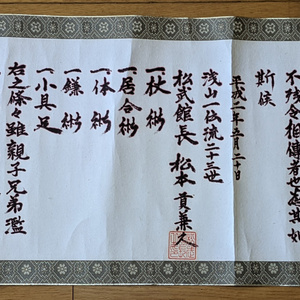 不残令相傳者也
斯候
平成
浅山一伝流二十三世
松武館長 松本貢兼久
一杖術
一居合術
一体術
一鎌術
一小具足
右之條々雖親子兄弟濫